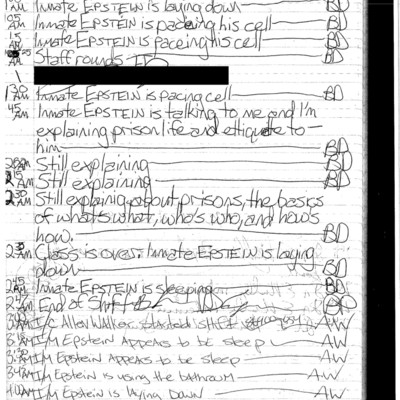 AM Inmate EPSTEIN is laying down BD
05 AM Inmate EPSTEIN is paceing his cell BD
15 AM Inmate EPSTEIN is paceing his cell BD
25 Staff rounds BD
130 AM Inmate EPSTEIN is pacing cell BD
45 AM Inmate EPSTEIN is talking to me and I'm
explaining prison life and ettiquete to
him BD
200 AM Still explaining BD
215 AM Still explaining BD
230 AM Still explaining about prisons, the basics
of what's what, who's who, and how's
how. BD
235 AM Class is over. Inmate EPSTEIN is laying
down BD
245 AM Inmate EPSTEIN is sleeping BD
247 AM End of Shift BD
300 AM I/C Allen Walker started shift AW
3:15 AM I/M Epstein Appears to be sleep AW
3:30 AM I/M Epstein Appears to be sleep AW
3:45 AM I/M Epstein is using the bathroom AW
4:00 AM I/M Epstein is laying Down AW